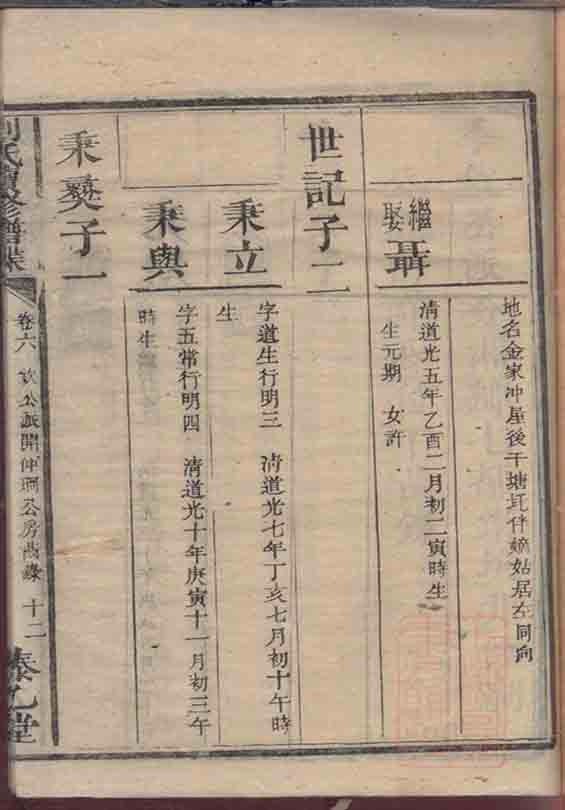 地名金家冲屋後干塘圫伴嫡姑居左同向
繼娶聶
清道光五年乙酉二月初二寅時生
生元期 女許
世記子二
秉立
字道生行明三 清道光七年丁亥七月初十午時
生
秉與
字五常行明四 清道光十年庚寅十一月初三午
時生
秉燮子一
劉氏續修譜牒
卷六 公派開仲公房齒錄 十二
藜乙堂